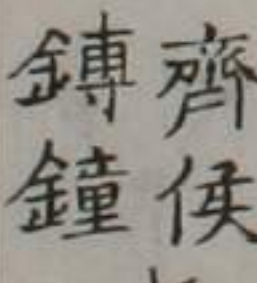 齊侯
鎛鐘